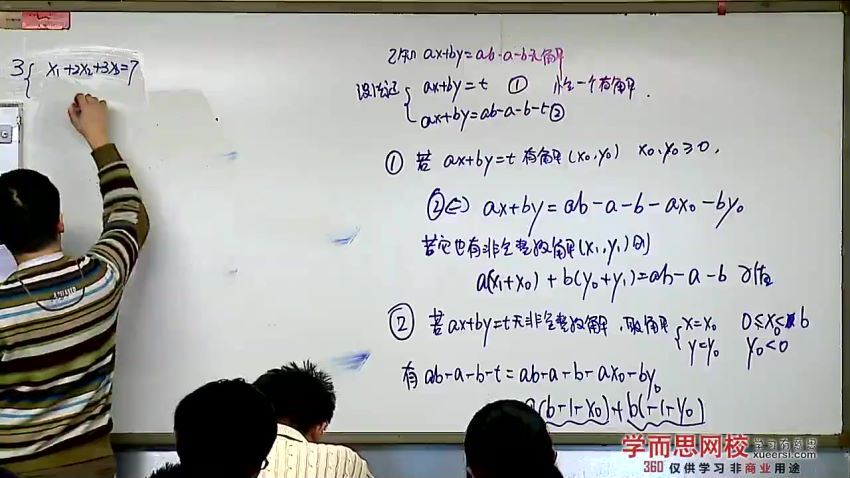 3{ x₁+2x₂+3x₃=7
已知 ax+by=ab-a-b无解
ax+by=t ① 恰一个有解.
ax+by=ab-a-b-t②
① 若 ax+by=t 有解(x₀,y₀) x₀,y₀≥0,
②⇔ ax+by=ab-a-b-ax₀-by₀
若它也有非负整数解(x₁,y₁)则
a(x₁+x₀)+b(y₀+y₁)=ab-a-b 矛盾
② 若ax+by=t无非负整数解,取解{x=x₀ 0≤x₀≤b
y=y₀ y₀<0
有 ab-a-b-t=ab-a-b-ax₀-by₀
a(b-1-x₀)+b(-1-y₀)
学而思网校 学习有意思
xueersi.com
360 仅供学习 非商业用途